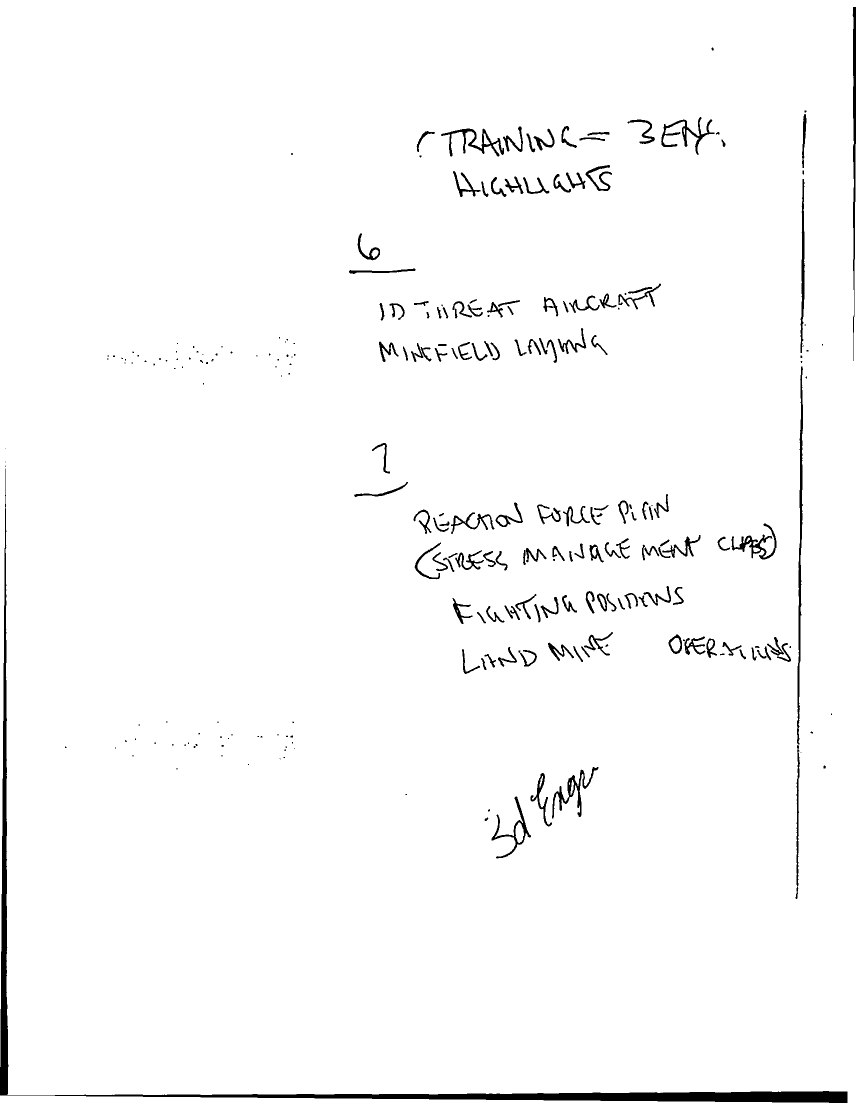 ( TRAINING = 3 ENG.
HIGHLIGHTS
6
ID THREAT AIRCRAFT
MINEFIELD LAYING
7
REACTION FORCE PLAN
(STRESS MANAGEMENT CLASS)
FIGHTING POSITIONS
LAND MINE OPERATIONS
3d Engr